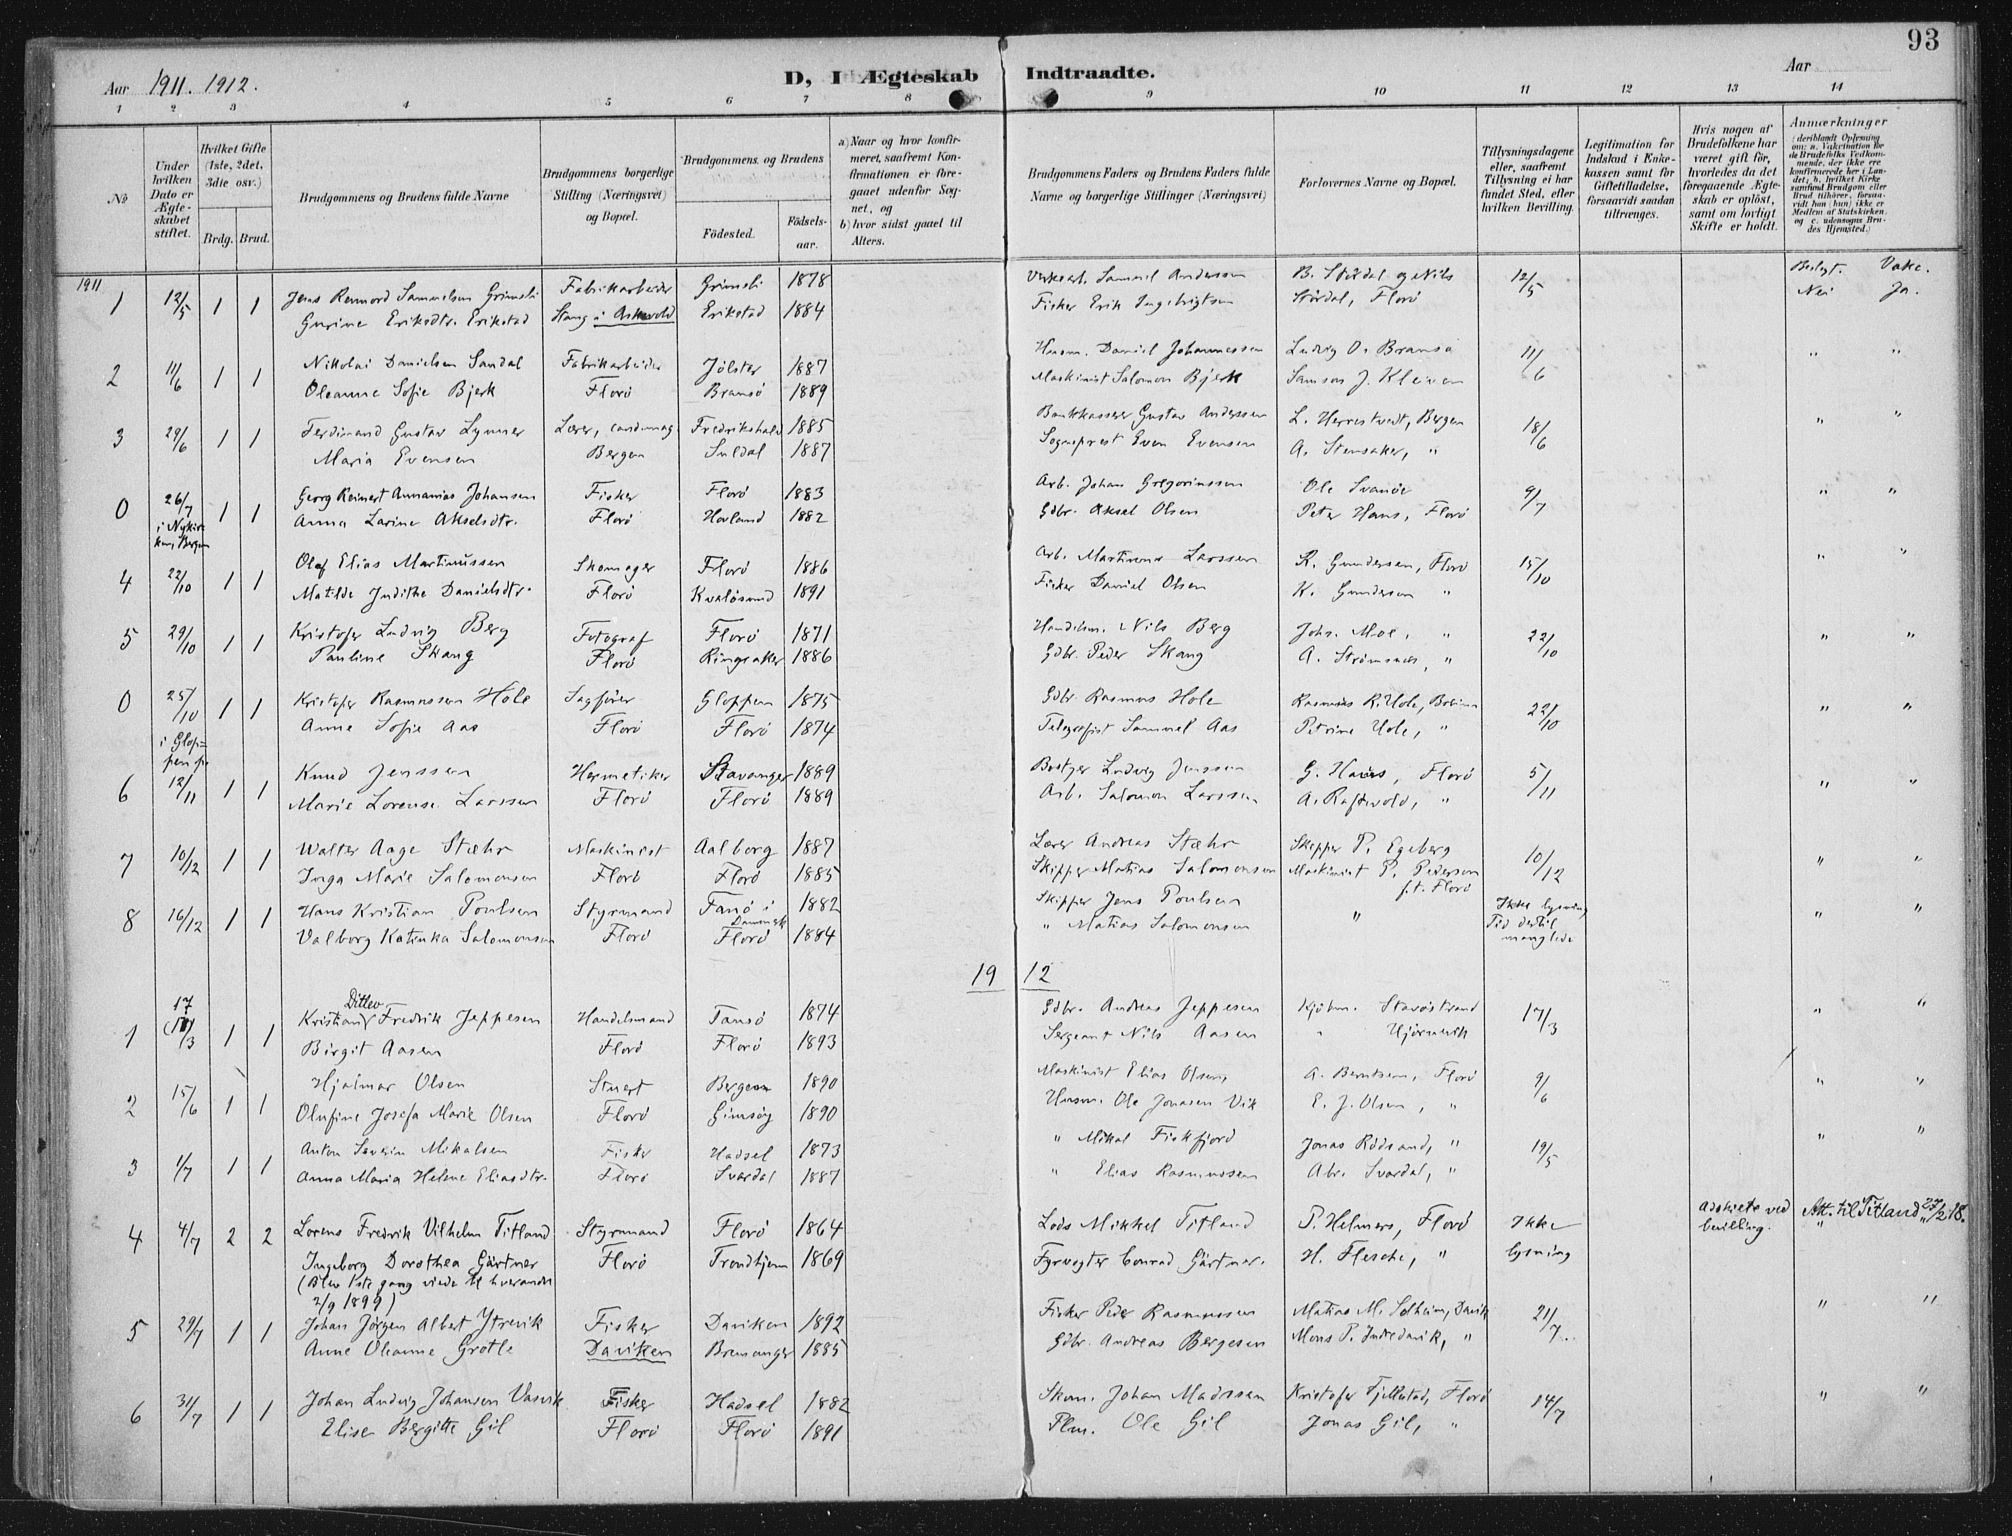 93
Aar 1911. 1912. D, I Ægteskab Indtraadte. Aar
1 2 3 4 5 6 7 8 9 10 11 12 13 14
No
Under hvilken Dato er Ægteskabet stiftet.
Hvilket Gifte (1ste, 2det, 3die osv.)
Brdg. Brud.
Brudgommens og Brudens fulde Navne
Brudgommens borgerlige Stilling (Næringsvei) og Bopæl.
Brudgommens og Brudens
Födested. Födselsaar.
a) Naar og hvor konfirmeret, saafremt Konfirmationen er foregaaet udenfor Sognet, og
b) hvor sidst gaaet til Alters.
Brudgommens Faders og Brudens Faders fulde Navne og borgerlige Stillinger (Næringsvei)
Forlovernes Navne og Bopæl.
Tillysningsdagene eller, saafremt Tillysning ei har fundet Sted, efter hvilken Bevilling.
Legitimation for Indskud i Enkekassen samt for Giftetilladelse, forsaavidt saadan tiltrænges.
Hvis nogen af Brudefolkene har været gift för, hvorledes da det foregaaende Ægteskab er oplöst, samt om lovligt Skifte er holdt.
Anmærkninger (deriblandt Oplysning om: a. Vakcination for de Brudefolks Vedkommende, der ikke ere konfirmerede her i Landet; b. hvilket Kirkesamfund Brudgom eller Brud tilhörer, forsaavidt han (hun) ikke er Medlem af Statskirken, og c. udensogns Brudes Hjemsted.)
1911 Beslegt. Vakc.
1 12/5 1 1 Jens Remord Samuelsen Grimsli Fabrikarbeider Grimsli 1878 Samuel Andersen B. Stårdal og Nils 12/5 Nei Ja.
Gurine Eriksdtr. Erikstad Stang i Askevold Erikstad 1884 Fisker Erik Ingebrigtsen Stårdal, Florö
2 11/6 1 1 Nikolai Danielsen Sandal Fabrikarbeider Jölster 1887 Husm. Daniel Johannessen Ludvig O. Bransö 11/6 " "
Oleanne Sofie Bjerk Florö Bransö 1889 Maskinist Salomon Bjerk Samson J. Kleiven
3 29/6 1 1 Ferdinand Gustav Lynner Lærer, cand.mag Fredrikshald 1885 Bankkasserer Gustav Anderssen L. Herrestvedt, Bergen 18/6 " "
Maria Evensen Bergen Suldal 1887 Sogneprest Even Evensen A. Stensaker, "
0 26/7 i Nykirken, Bergen 1 1 Georg Reinert Annanias Johansen Fisker Florö 1883 Arb. Johan Gregoriussen Ole Svanöe 9/7 " "
Anna Larine Akselsdtr. Florö Hovland 1882 Gdbr. Aksel Olsen Peter Hans, Florö
4 22/10 1 1 Olaf Elias Martinussen Skomager Florö 1886 Arb. Martinus Larssen R. Gundersen, Florö 15/10 " "
Matilde Judithe Danielsdtr. Florö Kvalösund 1891 Fisker Daniel Olsen K. Gundersen "
5 29/10 1 1 Kristofer Ludvig Berg Fotograf Florö 1871 Handelsm. Nils Berg Johs. Moe, " 22/10 " "
Pauline Skang Florö Ringsaker 1886 Gdbr. Peder Skang A. Strömsnes, "
0 25/10 i Gloppen pr. 1 1 Kristofer Rasmussen Hole Sagförer Gloppen 1875 Gdbr. Rasmus Hole Rasmus R. Hole, 22/10 " "
Anne Sofie Aas Florö Florö 1874 Telegrafist Sammel Aas Petrine Hole, "
6 12/11 1 1 Knud Jenssen Hermetiker Stavanger 1889 Ludvig Jenssen G. Haaes, Florö 5/11 " "
Marie Lorense Larssen Florö Florö 1889 Arb. Salomon Larssen A. Raftevold, "
7 10/12 1 1 Walter Aage Stæhr Maskinist Aalborg 1887 Lærer Andreas Stæhr Skipper P. Egeberg 10/12 " "
Inga Marie Salomonsen Florö Florö 1885 Skipper Matias Salomonsen Maskinist P. Pedersen f.t. Florö
8 16/12 1 1 Hans Kristian Poulsen Styrmand Fanö i Danmark 1882 Skipper Jens Poulsen " Ikke lysning Tid dertil manglede " "
Valborg Katinka Salomonsen Florö Florö 1884 " Matias Salomonsen
19 12
1 17/3 1 1 Kristian Ditlev Fredrik Jeppesen Handelsmand Tansö 1874 Gdbr. Andreas Jeppesen Kjöbm. Stavöstrand 17/3 " "
Birgit Aasen Florö Florö 1893 Sergeant Nils Aasen " Hjörnevik
2 15/6 1 1 Hjalmar Olsen Stuert Bergen 1890 Maskinist Elias Olsen, A. Berntsen, Florö 9/6 " "
Olufine Josefa Marie Olsen Florö Gimsöy 1890 Husm. Ole Jonasen Vik E. J. Olsen, "
3 1/7 1 1 Anton Severin Mikalsen Fisker Hadsel 1873 " Mikal Fiskfjord Jonas Rödsand, " 19/5 " "
Anna Maria Helene Eliasdtr. Florö Svardal 1887 " Elias Rasmussen Abr. Svardal, "
4 4/7 2 2 Lorens Fredrik Vilhelm Titland Styrmand Florö 1864 Lods Mikkel Titland P. Helmers, Florö Ikke Adskilte ved bevilling. Att. til Titland 27/2 18.
Ingeborg Dorothea Gärtner Florö Trondhjem 1869 Fyrvogter Conrad Gärtner. H. Flesche, " lysning
(Blev 1ste gang viede til hverandre 2/9 1899)
5 29/7 1 1 Johan Jörgen Albert Ytrevik Fisker Daviken 1892 Fisker Peder Rasmussen Matias M. Solheim, Davik 21/7 " "
Anne Oleanne Grotle Daviken Bremanger 1885 Gdbr. Andreas Bergesen Mons P. Indredavik, "
6 31/7 1 1 Johan Ludvig Johansen Vasvik Fisker Hadsel 1882 Skom. Johan Madssen Kristofer Fjellestad, Florö 14/7 " "
Elise Bergitte Gil Florö Florö 1891 Plm. Ole Gil Jonas Gil, "